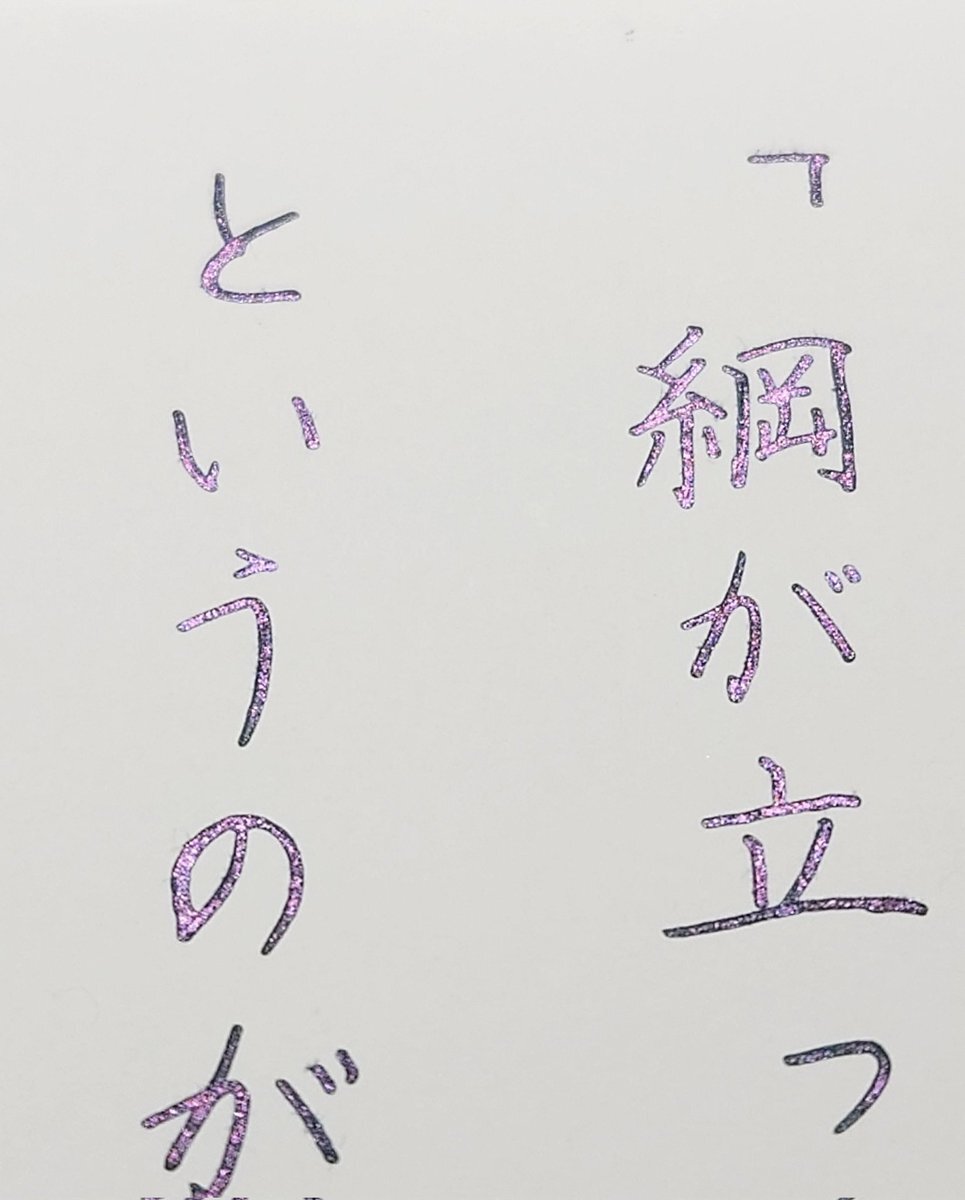 「綱が立つ
というのが